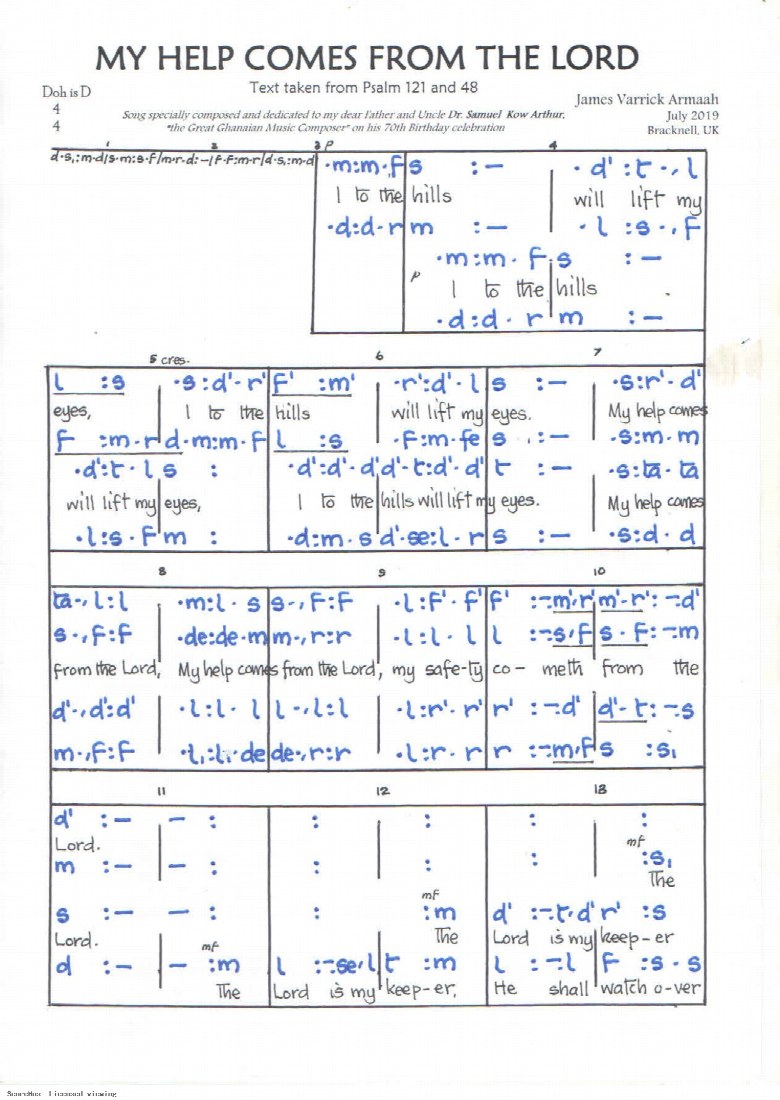 MY HELP COMES FROM THE LORD
Text taken from Psalm 121 and 48
Doh is D
4
4
James Varrick Armaah
July 2019
Bracknell, UK
Song specially composed and dedicated to my dear Father and Uncle Dr. Samuel Kow Arthur,
"the Great Ghanaian Music Composer" on his 70th Birthday celebration
1 2 3 p 4
d·s,:m·d/s·m:s·f/m·r·d:-/f·f:m·r/d·s,:m·d
·m:m·f s :— ·d':t·,l
I to the hills will lift my
·d:d·r m :— ·l :s·,f
·m:m·f s :—
p I to the hills
·d:d·r m :—
5 cres. 6 7
l :s ·s:d'·r' f' :m' ·r':d'·l s :— ·s:r'·d'
eyes, I to the hills will lift my eyes. My help comes
f :m·r d·m:m·f l :s ·f:m·fe s :— ·s:m·m
·d':t·l s : ·d':d'·d' d'·t:d'·d' t :— ·s:ta·ta
will lift my eyes, I to the hills will lift my eyes. My help comes
·l:s·f m : ·d:m·s d'·se:l·r s :— ·s:d·d
8 9 10
ta·,l:l ·m:l·s s·,f:f ·l:f'·f' f' :-·m'r' m'·r':-·d'
s·,f:f ·de:de·m m·,r:r ·l:l·l l :-·s/f s·f:-·m
from the Lord, My help comes from the Lord, my safe-ty co- meth from the
d'·,d':d' ·l:l·l l·,l:l ·l:r'·r' r' :-·d' d'·t:-·s
m·,f:f ·l,:l,·de de·,r:r ·l:r·r r :-·m/f s :s,
11 12 13
d' :— — : : : : :
Lord. mf
m :— — : : : : :s,
The
mf
s :— — : : :m d' :-·t,d' r' :s
Lord. The Lord is my keep-er
mf
d :— — :m l :-·se/l t :m l :-·l f :s·s
The Lord is my keep-er, He shall watch o-ver